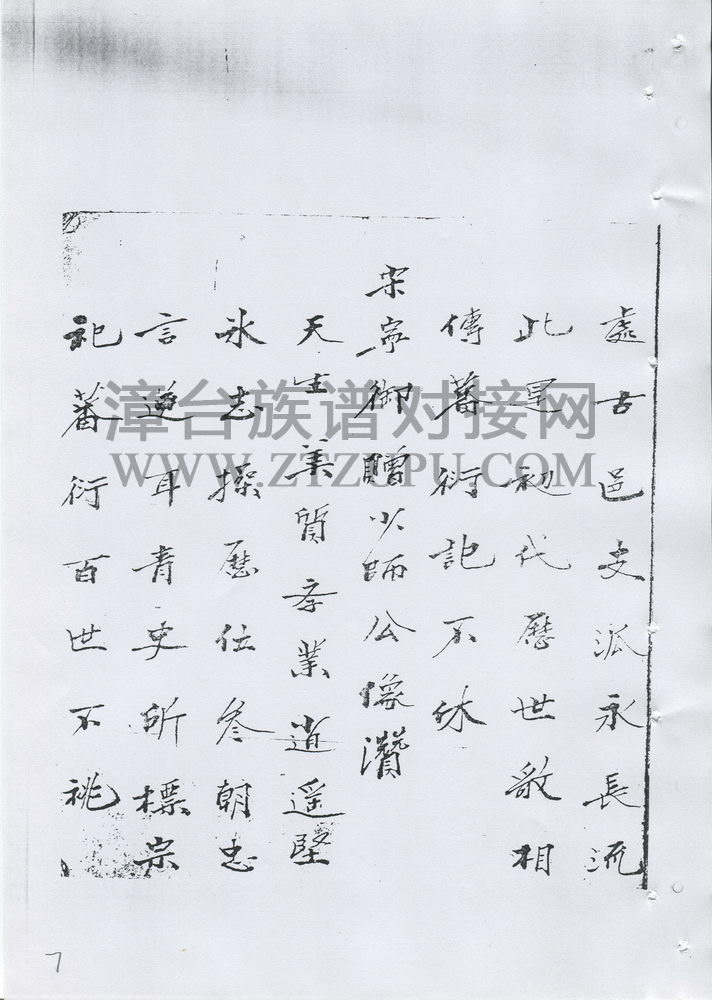 處古邑支派永長流
此是初代歷世敘相
傳蕃衍記不休
宋寧御贈少師公像讚
天生美質孝業逍遥堅
氷志操歷仕參朝忠
言逆耳青史所標宗
祀蕃衍百世不祧
漳台族谱对接网
WWW.ZTZUPU.COM
7